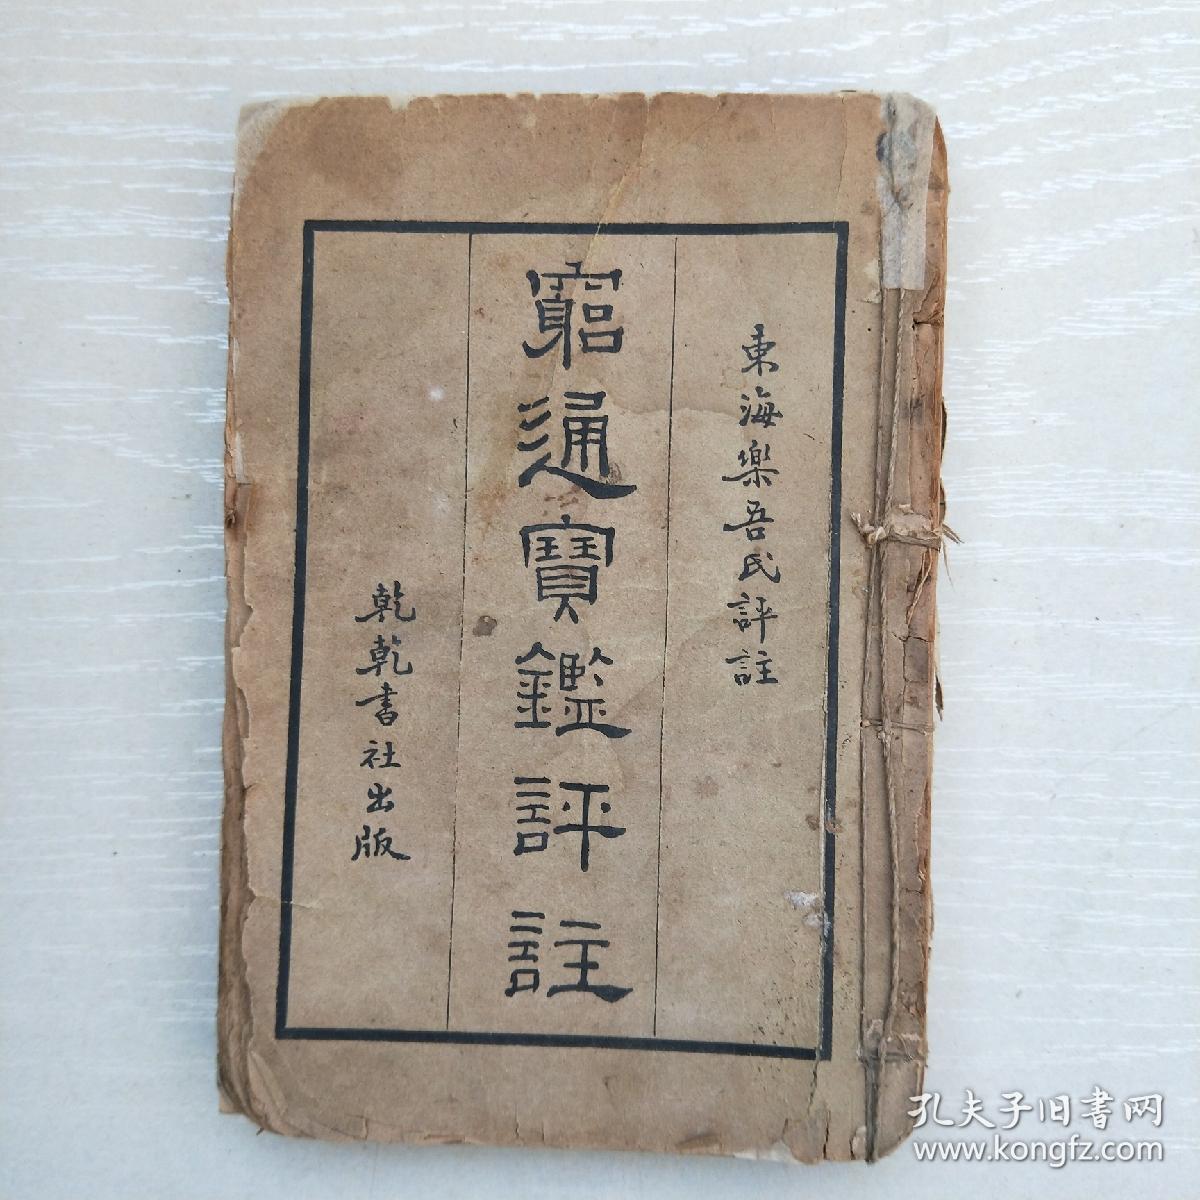 東海樂吾氏評註
窮通寶鑑評註
乾乾書社出版
孔夫子旧書网
www.kongfz.com